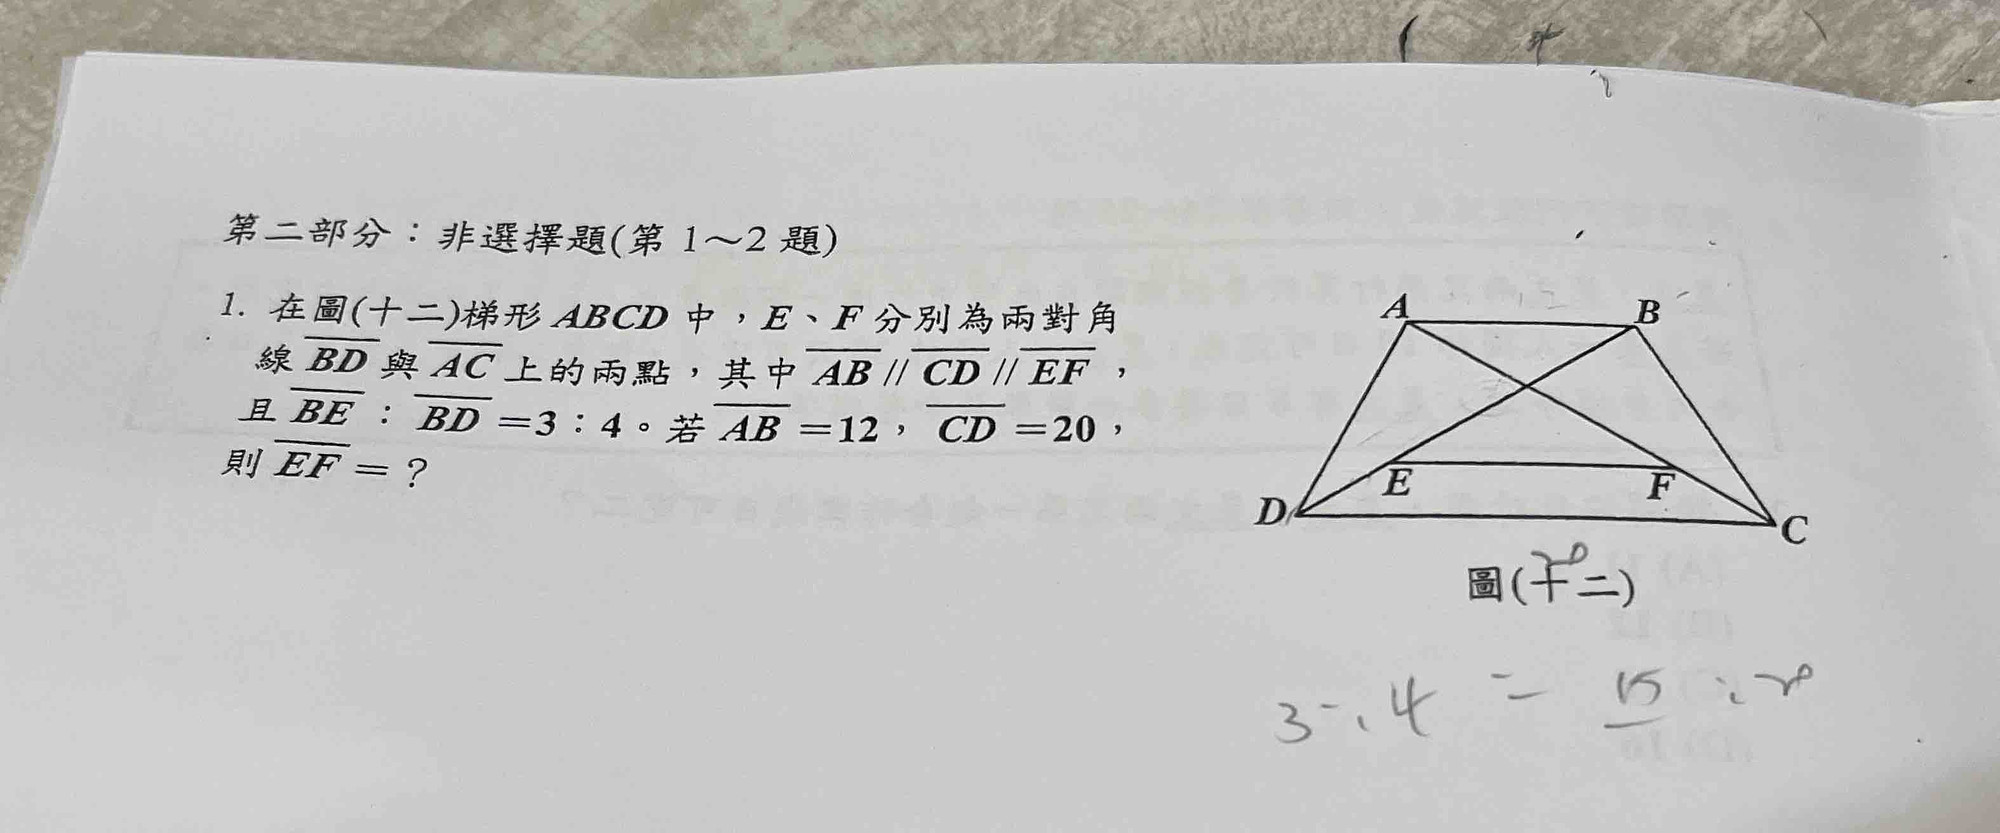 第二部分：非選擇題(第 1～2 題)
1. 在圖(十二)梯形 ABCD 中，E、F 分別為兩對角
線 BD 與 AC 上的兩點，其中 AB // CD // EF，
且 BE：BD=3：4。若 AB=12，CD=20，
則 EF=？
A
B
E
F
D
C
圖(十二)
20
3：4 = 15：20